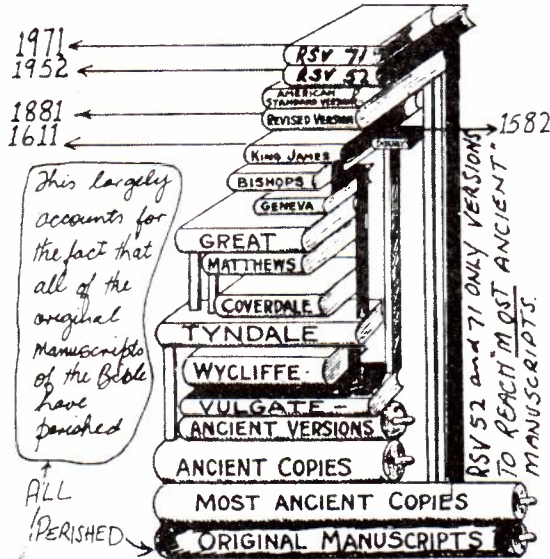 1971
1952
1881
1611
RSV 71
RSV 52
AMERICAN
STANDARD VERSION
REVISED VERSION
1582
KING JAMES
BISHOPS
GENEVA
GREAT
MATTHEWS
COVERDALE
TYNDALE
WYCLIFFE
VULGATE
ANCIENT VERSIONS
ANCIENT COPIES
MOST ANCIENT COPIES
ORIGINAL MANUSCRIPTS
This largely
accounts for
the fact that
all of the
original
manuscripts
of the Bible
have
perished
ALL
PERISHED
RSV 52 and 71 ONLY VERSIONS
TO REACH "MOST ANCIENT"
MANUSCRIPTS.